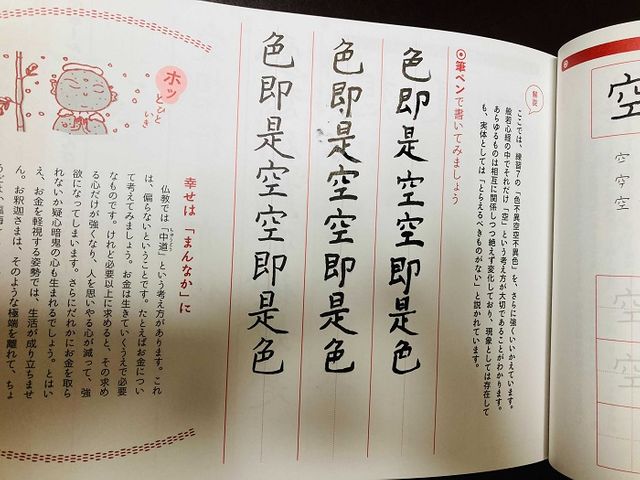 空
空空空
空
空
解説
ここでは、練習7の「色不異空空不異色」を、さらに強くいいかえています。
般若心経の中でそれだけ「空」という考え方が大切であることがわかります。
あらゆるものは相互に関係しつつ絶えず変化しており、現象としては存在して
も、実体としては「とらえるべきものがない」と説かれています。
◎筆ペンで書いてみましょう
色即是空空即是色
色即是空空即是色
色即是空空即是色
ホッ
とひと
いき
幸せは「まんなか」に
仏教では「中道」という考え方があります。これ
は、偏らないということです。たとえばお金につい
て考えてみましょう。お金は生きていくうえで必要
なものです。けれど必要以上に求めると、その求め
る心だけが強くなり、人を思いやる心が減って、強
欲になってしまいます。さらにだれかにお金を取ら
れないか疑心暗鬼の心も生まれるでしょう。とはい
え、お金を軽視する姿勢では、生活が成り立ちませ
ん。お釈迦さまは、そのような極端を離れて、ちょ